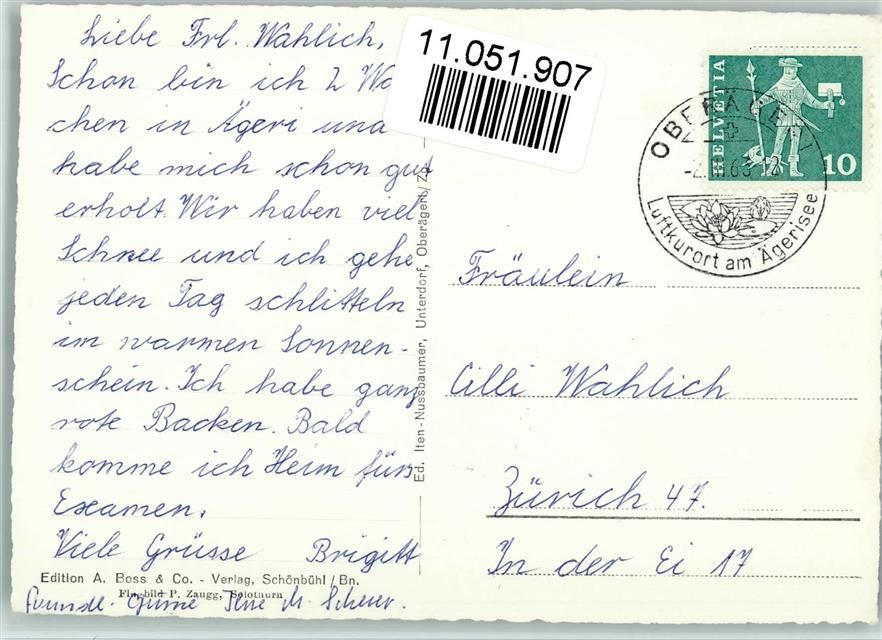 Liebe Frl. Wahlich,
Schon bin ich 2 Wo
chen in Ägeri und
habe mich schon gut
erholt. Wir haben viel
Schnee und ich gehe
jeden Tag schlitteln
im warmen Sonnen-
schein. Ich habe ganz
rote Backen. Bald
komme ich Heim fürs
Examen.
Viele Grüsse Brigitt
Edition A. Boss & Co. - Verlag, Schönbühl/Bn.
Flugbild P. Zaugg, Solothurn
M. Scherer.
Ed. Iten-Nussbaumer, Unterdorf, Oberägeri/
11.051.907
HELVETIA
10
OBERÄGERI
Luftkurort am Ägerisee
Fräulein
Cilli Wahlich
Zürich 47.
In der Ei 17